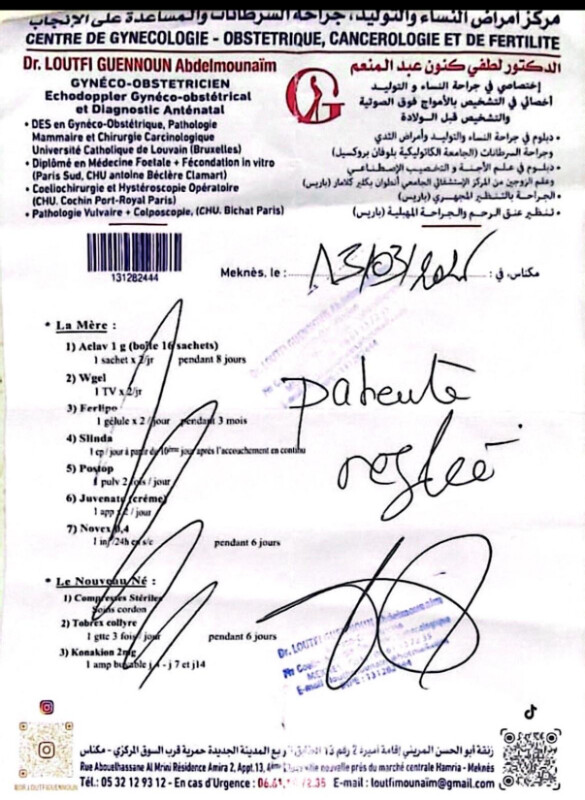 مركز أمراض النساء والتوليد، جراحة السرطانات والمساعدة على الإنجاب
CENTRE DE GYNECOLOGIE - OBSTETRIQUE, CANCEROLOGIE ET DE FERTILITE
Dr. LOUTFI GUENNOUN Abdelmounaïm
GYNÉCO-OBSTETRICIEN
Echodoppler Gynéco-obstétrical
et Diagnostic Anténatal
• DES en Gynéco-Obstétrique, Pathologie
Mammaire et Chirurgie Carcinologique
Université Catholique de Louvain (Bruxelles)
• Diplômé en Médecine Foetale + Fécondation in vitro
(Paris Sud, CHU antoine Béclère Clamart)
• Coeliochirurgie et Hystéroscopie Opératoire
(CHU. Cochin Port-Royal Paris)
• Pathologie Vulvaire + Colposcopie, (CHU. Bichat Paris)
الدكتور لطفي كنون عبد المنعم
إختصاصي في جراحة النساء و التوليد
أخصائي في التشخيص بالأمواج فوق الصوتية
والتشخيص قبل الولادة
• دبلوم في جراحة النساء والتوليد وأمراض الثدي
وجراحة السرطانات (الجامعة الكاثوليكية بلوفان بروكسيل)
• دبلوم في علم الأجنة و التخصيب الإصطناعي
وعقم الزوجين من المركز الإستشفائي الجامعي أنطوان بكلير كلامار (باريس)
• الجراحة بالتنظير المجهري (باريس)
• تنظير عنق الرحم والجراحة المهبلية (باريس)
131282444
Meknès, le : 13/03/ مكناس، في :
* La Mère :
1) Aclav 1 g (boîte 16 sachets)
1 sachet x 2/jr pendant 8 jours
2) Wgel
1 TV x 2/jr
3) Ferlipo
1 gélule x 2 / jour pendant 3 mois
4) Slinda
1 cp / jour à partir du 10ème jour après l'accouchement en continu
5) Postop
1 pulv 2 fois / jour
6) Juvenate (crème)
1 app x 2 / jour
7) Novex 0,4
1 inj /24h en s/c pendant 6 jours
patiente
* Le Nouveau Né :
1) Compresses Stériles
Soins cordon
2) Tobrex collyre
1 gtte 3 fois / jour pendant 6 jours
3) Konakion 2mg
1 amp buvable j 4 - j 7 et j14
Dr. LOUTFI GUENNOUN Abdelmounaïm
@DR.LOUTFIGUENNOUN
زنقة أبو الحسن المريني إقامة أميرة 2 رقم 13 المدينة الجديدة حمرية قرب السوق المركزي - مكناس
Rue Abouelhassane Al Mrini Résidence Amira 2, Appt.13, ville nouvelle près du marché centrale Hamria - Meknès
Tél.: 05 32 12 93 12 - En cas d'Urgence : 06.61. 72.35 E-mail : loutfimounaim@gmail.com